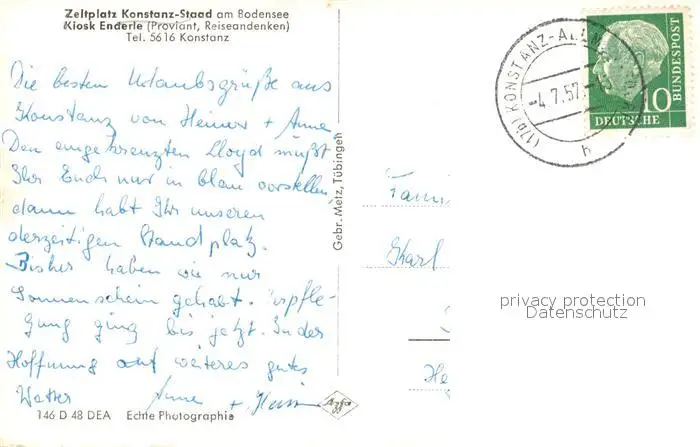 Zeltplatz Konstanz-Staad am Bodensee
Kiosk Enderle (Proviant, Reiseandenken)
Tel. 5616 Konstanz
Die besten Urlaubsgrüße aus
Konstanz von Heiner + Anne
Den eingekreuzten Lloyd müßt
Ihr Euch nur in blau vorstellen,
dann habt Ihr unseren
derzeitigen Standplatz.
Bisher haben wir nur
Sonnenschein gehabt. Verpfle-
gung ging bis jetzt. In der
Hoffnung auf weiteres gutes
Wetter Anne + Heiner
146 D 48 DEA Echte Photographie
Gebr. Metz, Tübingen
Agfa
(17b) KONSTANZ-ALLM
-4.7.57.
h
10
DEUTSCHE
BUNDESPOST
Fami
Karl
He
privacy protection
Datenschutz